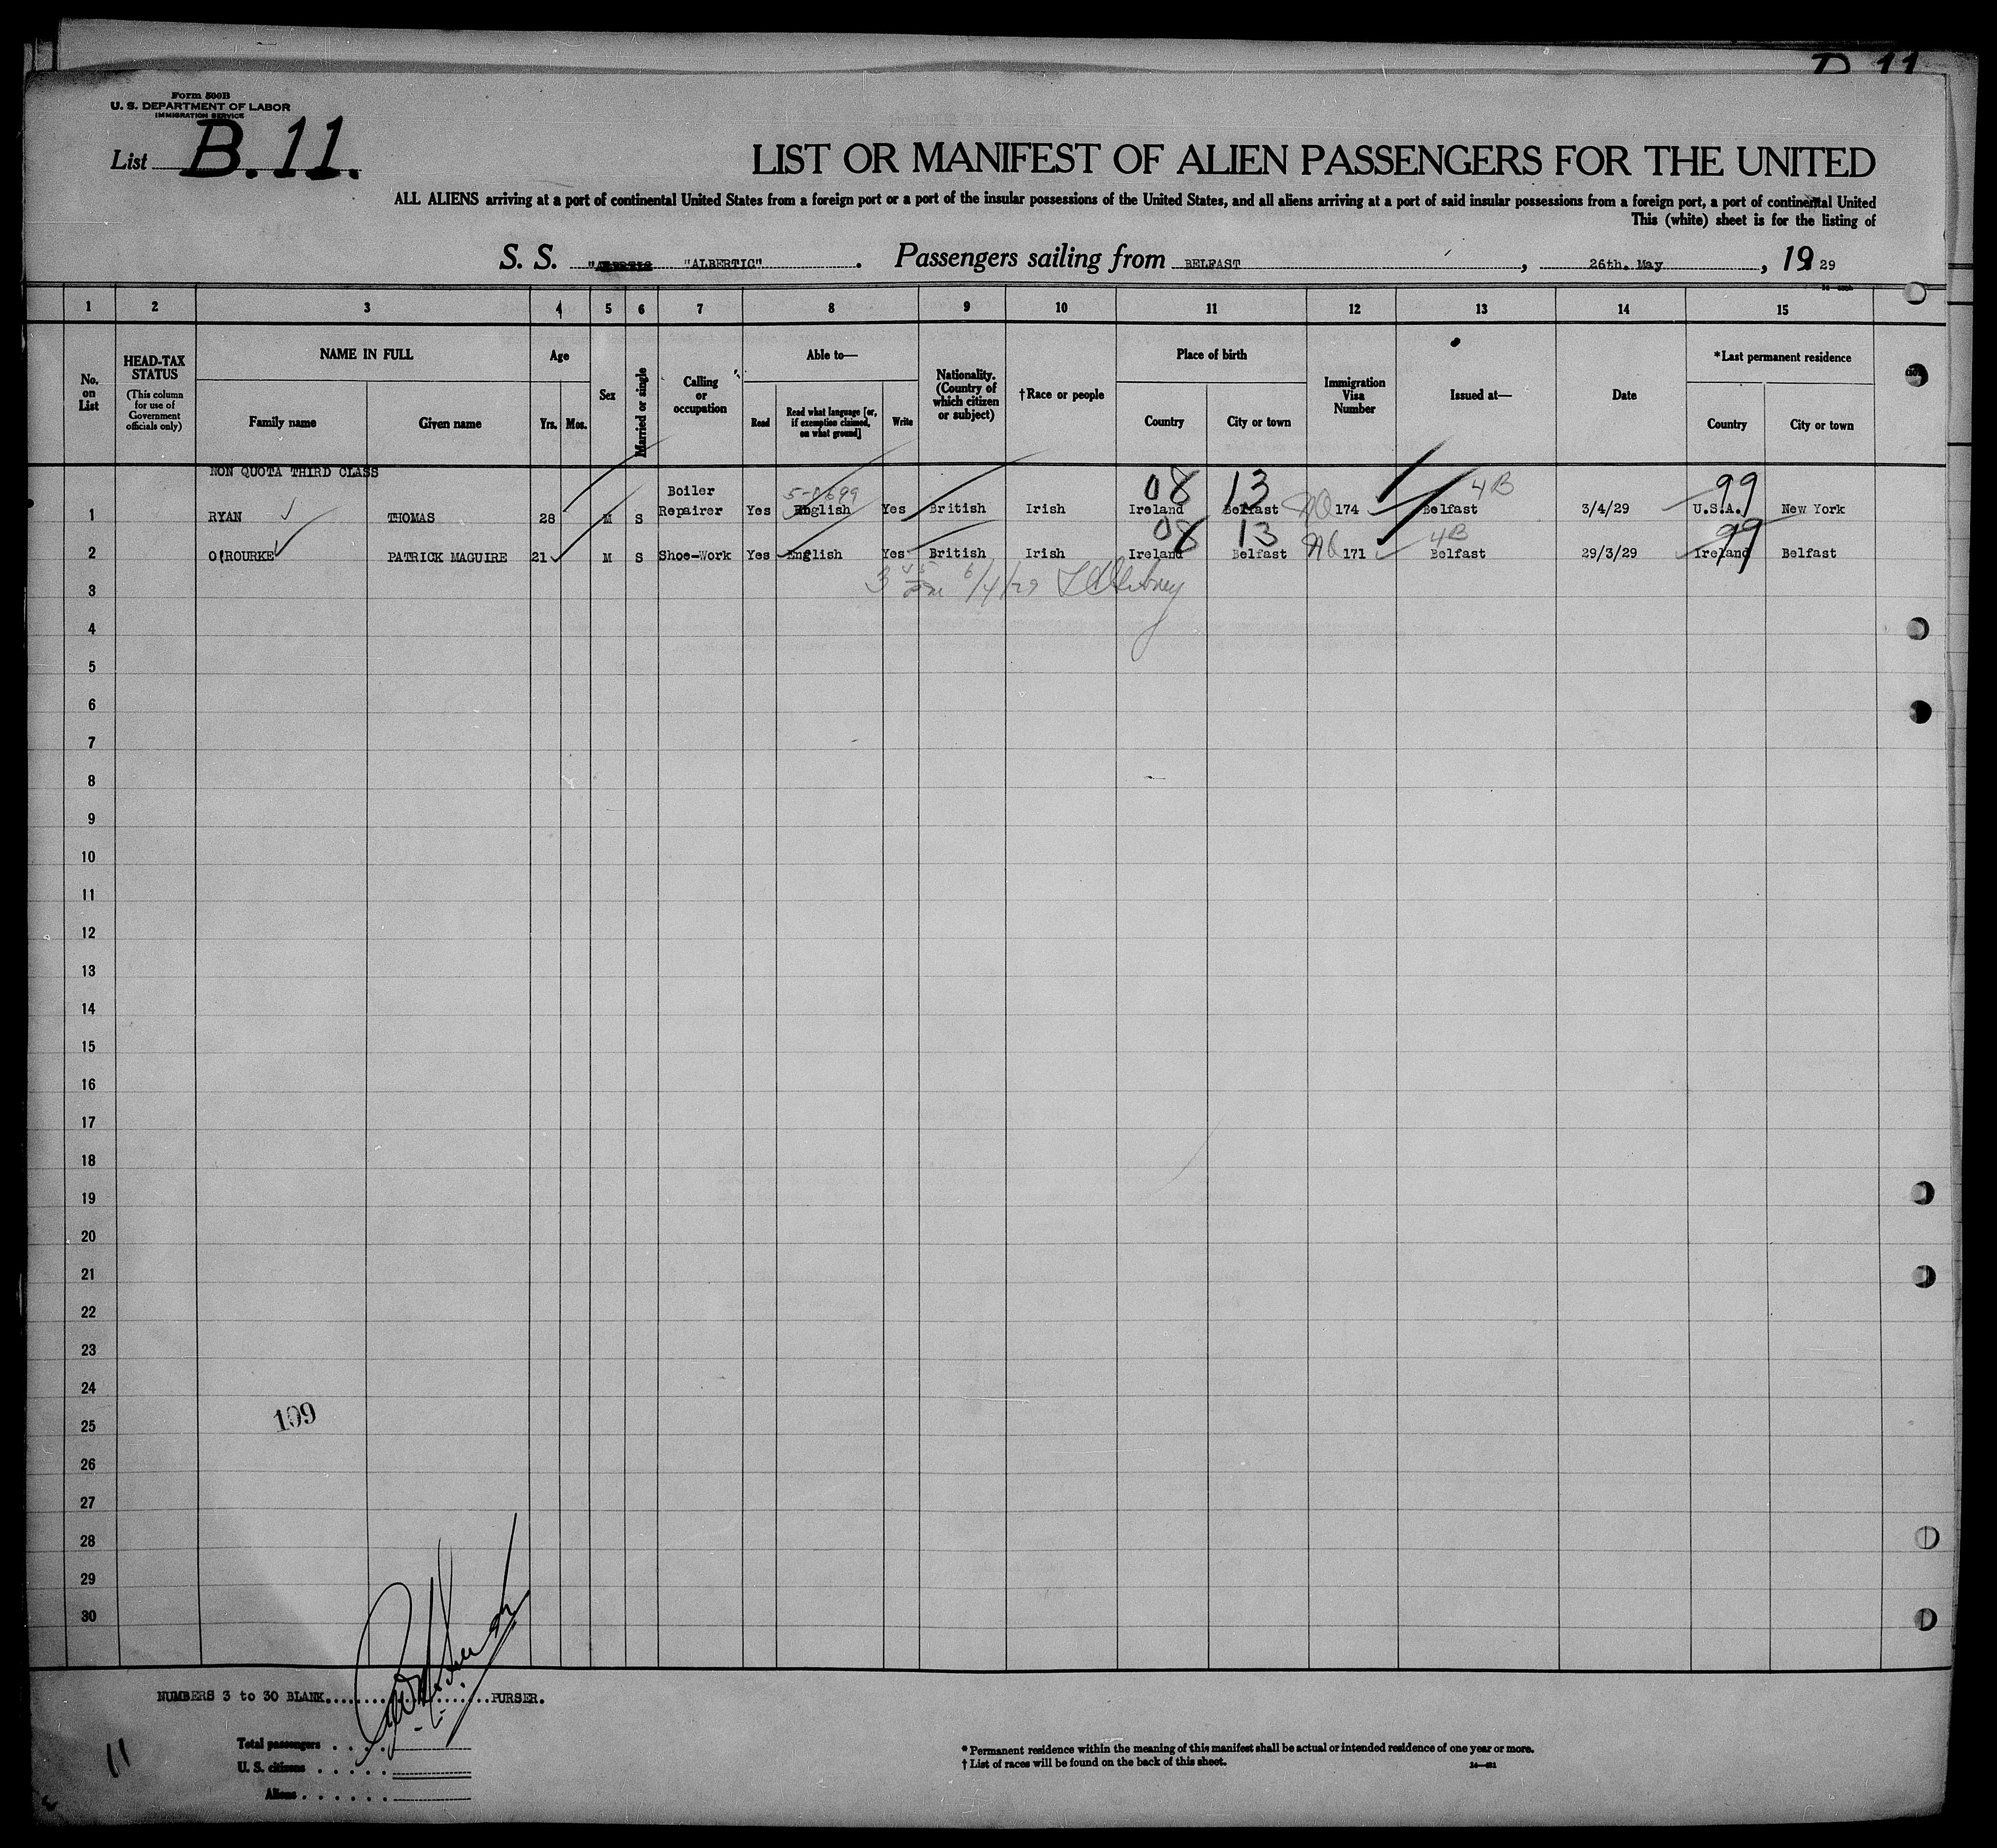 Form 500B
U. S. DEPARTMENT OF LABOR
IMMIGRATION SERVICE
List B. 11.
LIST OR MANIFEST OF ALIEN PASSENGERS FOR THE UNITED
ALL ALIENS arriving at a port of continental United States from a foreign port or a port of the insular possessions of the United States, and all aliens arriving at a port of said insular possessions from a foreign port, a port of continental United
This (white) sheet is for the listing of
S. S. "ALBERTIC". Passengers sailing from BELFAST, 26th. May, 19 29
1 2 3 4 5 6 7 8 9 10 11 12 13 14 15
No. on List
HEAD-TAX STATUS (This column for use of Government officials only)
NAME IN FULL
Family name Given name
Age
Yrs. Mos.
Sex
Married or single
Calling or occupation
Able to—
Read Read what language [or, if exemption claimed, on what ground] Write
Nationality. (Country of which citizen or subject)
†Race or people
Place of birth
Country City or town
Immigration Visa Number
Issued at—
Date
*Last permanent residence
Country City or town
NON QUOTA THIRD CLASS
1 RYAN THOMAS 28 M S Boiler Repairer Yes English Yes British Irish Ireland Belfast NQ 174 Belfast 3/4/29 U.S.A. New York
08 13 4B 99
2 O'ROURKE PATRICK MAGUIRE 21 M S Shoe-Work Yes English Yes British Irish Ireland Belfast NQ 171 Belfast 29/3/29 Ireland Belfast
08 13 4B 99
3
4
5
6
7
8
9
10
11
12
13
14
15
16
17
18
19
20
21
22
23
24
25
109
26
27
28
29
30
NUMBERS 3 to 30 BLANK. PURSER.
Total passengers
U. S. citizens
Aliens
11
* Permanent residence within the meaning of this manifest shall be actual or intended residence of one year or more.
† List of races will be found on the back of this sheet.